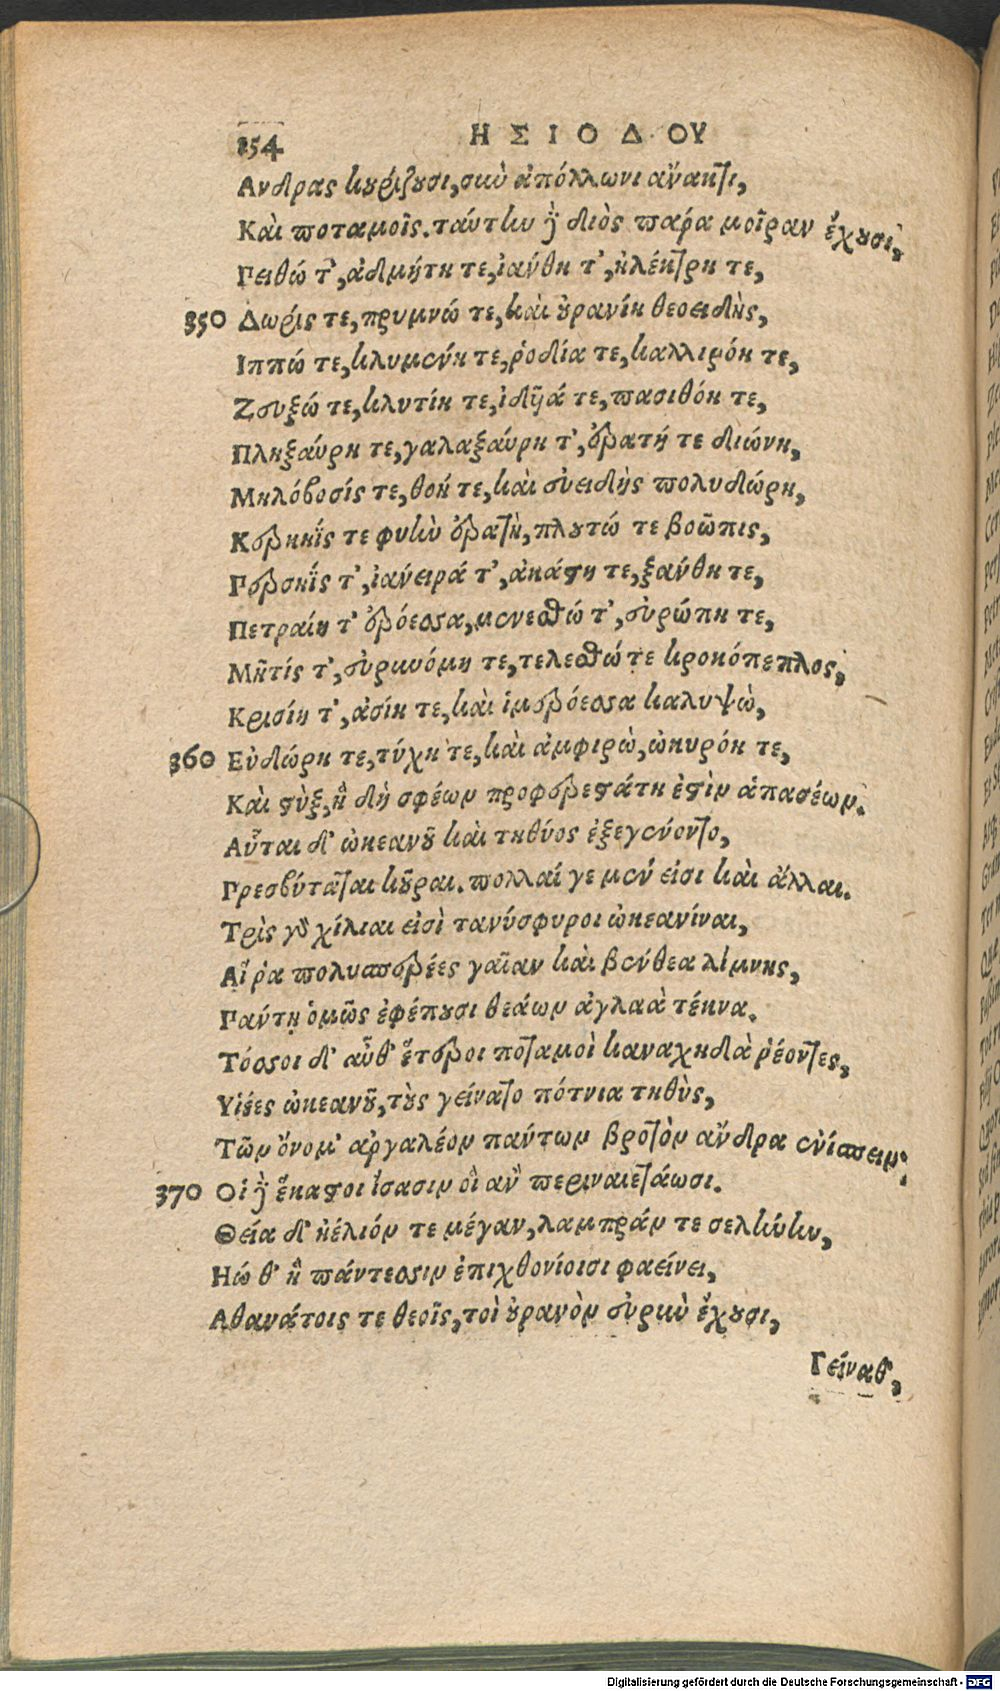 254
ΗΣΙΟΔΟΥ
Ανδρας κουρίζουσι, σὺν ἀπόλλωνι ἄνακτι,
Καὶ ποταμοῖς. ταύτην δὲ διὸς πάρα μοῖραν ἔχουσι,
Πειθώ τ', ἀδμήτη τε, ἰάνθη τ', ἠλέκτρη τε,
350 Δωρίς τε, πρυμνώ τε, καὶ οὐρανίη θεοειδὴς,
Ιππώ τε, κλυμένη τε, ῥοδία τε, καλλιρόη τε,
Ζευξώ τε, κλυτίη τε, ἰδῆά τε, πασιθόη τε,
Πληξαύρη τε, γαλαξαύρη τ', ἐρατή τε διώνη,
Μηλόβοσίς τε, θοή τε, καὶ εὐειδὴς πολυδώρη,
Κερκηΐς τε φυὴν ἐρατὴ, πλουτώ τε βοῶπις,
Περσηΐς τ', ἰάνειρά τ', ἀκάστη τε, ξάνθη τε,
Πετραίη τ' ἐρόεσσα, μενεσθώ τ', εὐρώπη τε,
Μῆτίς τ', εὐρυνόμη τε, τελεσθώ τε κροκόπεπλος,
Κρισίη τ', ἀσίη τε, καὶ ἱμερόεσσα καλυψὼ,
360 Εὐδώρη τε, τύχη τε, καὶ ἀμφιρὼ, ὠκυρόη τε,
Καὶ στὺξ, ἣ δὴ σφέων προφερεστάτη ἐστὶν ἁπασέων.
Αὗται δ' ὠκεανοῦ καὶ τηθύος ἐξεγένοντο,
Πρεσβύταται κοῦραι. πολλαί γε μέν εἰσι καὶ ἄλλαι.
Τρὶς γὰρ χίλιαι εἰσὶ τανύσφυροι ὠκεανίναι,
Αἵ ῥα πολυσπερέες γαῖαν καὶ βένθεα λίμνης,
Πάντη ὁμῶς ἐφέπουσι θεάων ἀγλαὰ τέκνα.
Τόσσοι δ' αὖθ' ἕτεροι ποταμοὶ καναχηδὰ ῥέοντες,
Υἱέες ὠκεανοῦ, τοὺς γείνατο πότνια τηθὺς,
Τῶν ὄνομ' ἀργαλέον πάντων βροτὸν ἄνδρα ἐνίσπειν·
370 Οἱ δὲ ἕκαστοι ἴσασιν οἳ ἂν περιναιετάωσι.
Θεία δ' ἠέλιόν τε μέγαν, λαμπράν τε σελήνην,
Ηώ θ' ἣ πάντεσσιν ἐπιχθονίοισι φαείνει,
Αθανάτοις τε θεοῖς, τοὶ οὐρανὸν εὐρὺν ἔχουσι,
Γείναθ',
Digitalisierung gefördert durch die Deutsche Forschungsgemeinschaft - DFG